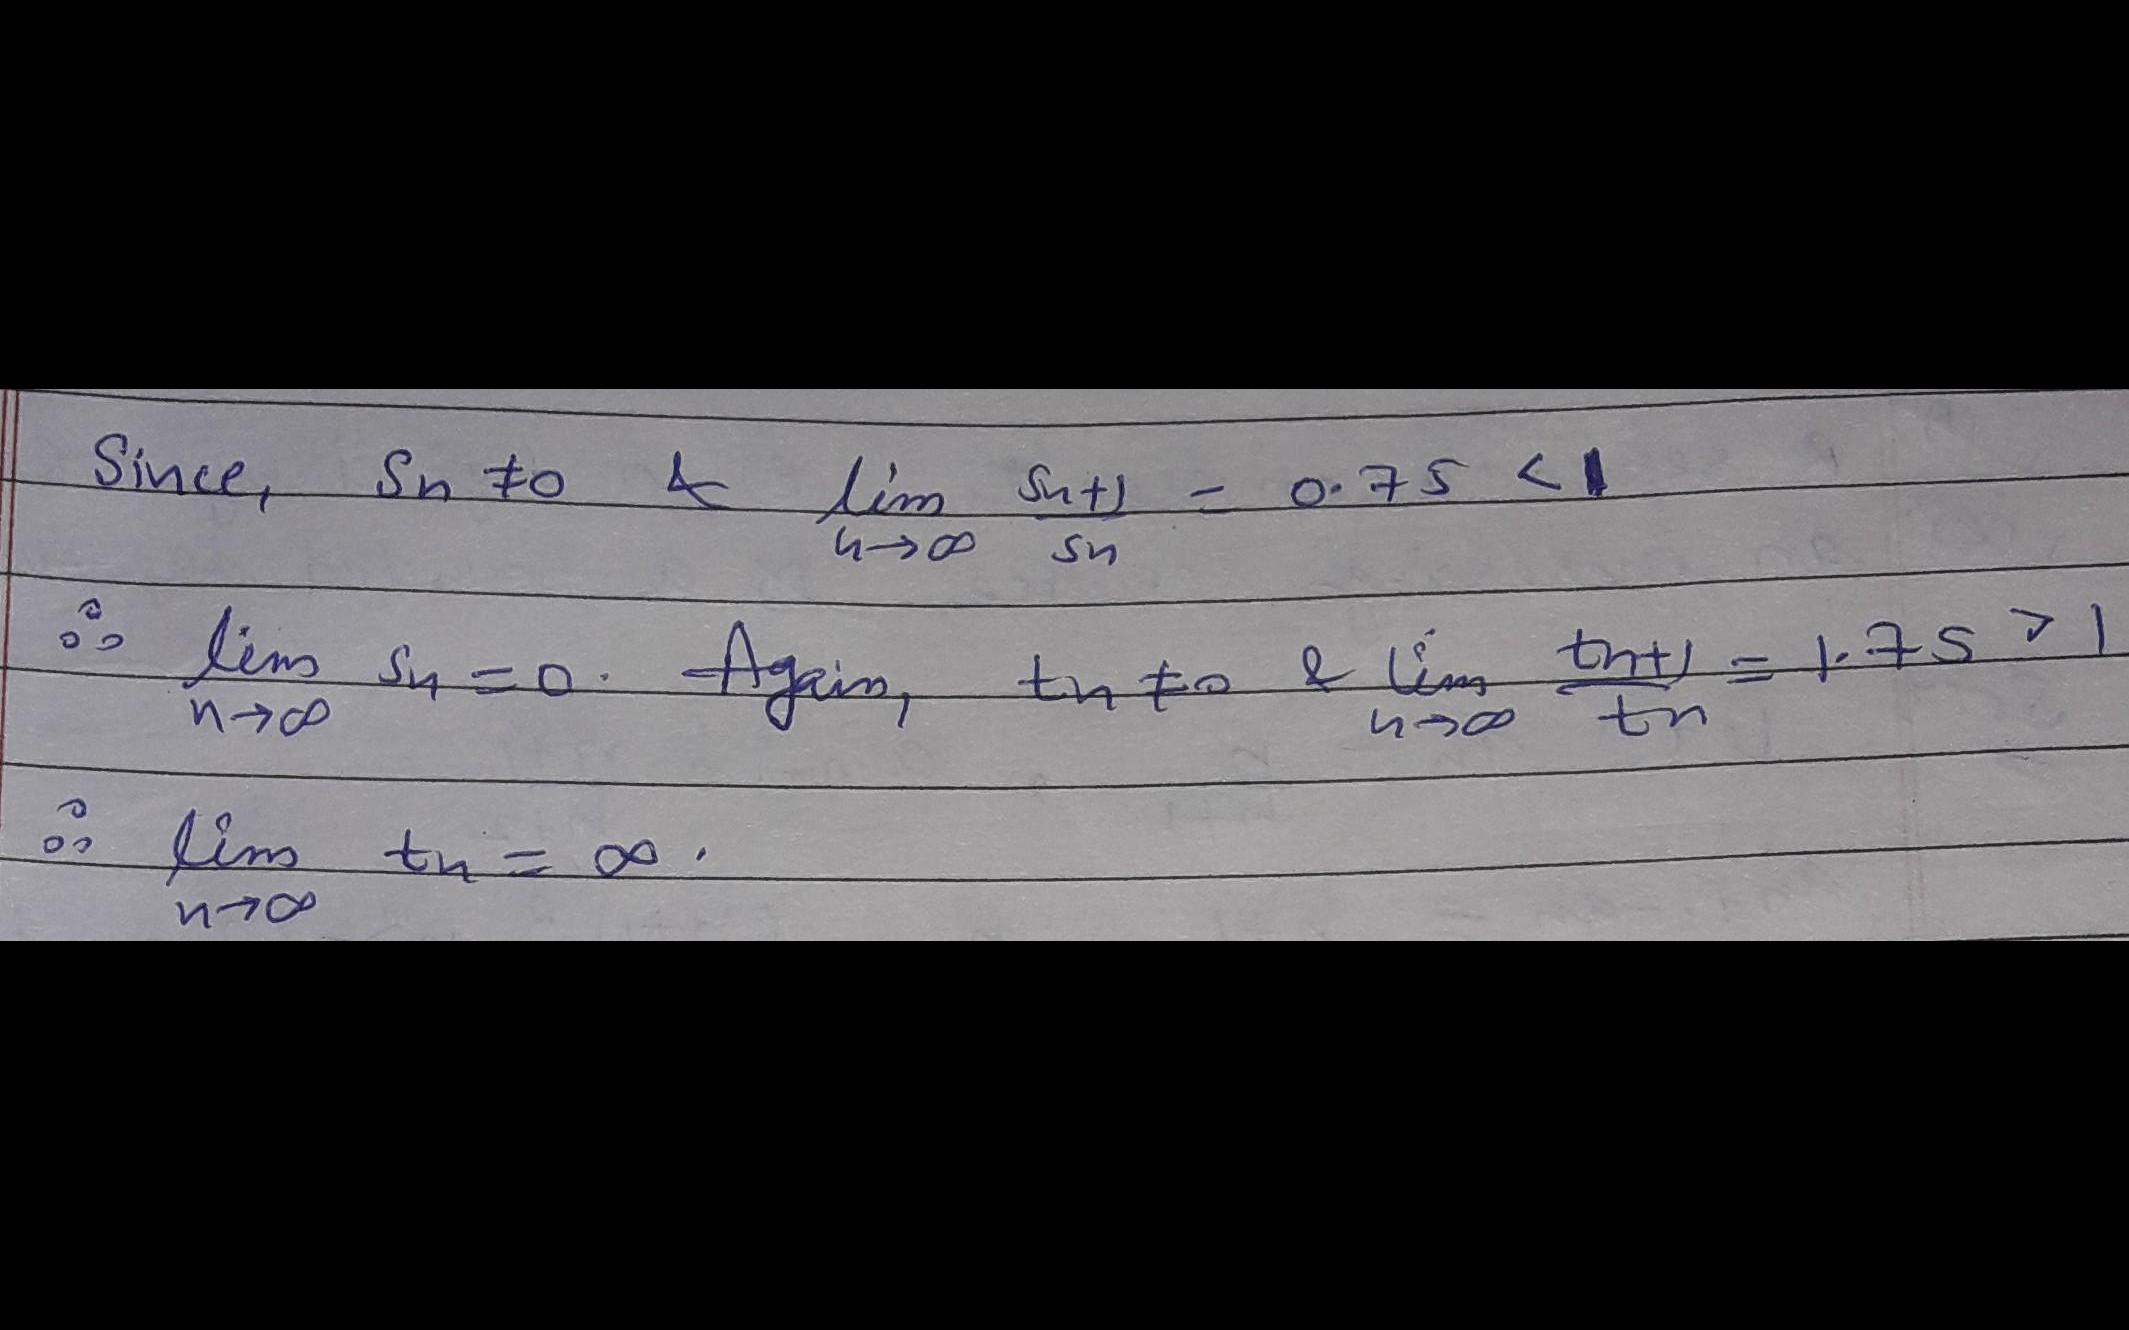 Since, Sn ≠ 0 & lim n→∞ Sn+1/Sn = 0.75 < 1
∴ lim n→∞ Sn = 0. Again, tn ≠ 0 & lim n→∞ tn+1/tn = 1.75 > 1
∴ lim n→∞ tn = ∞.